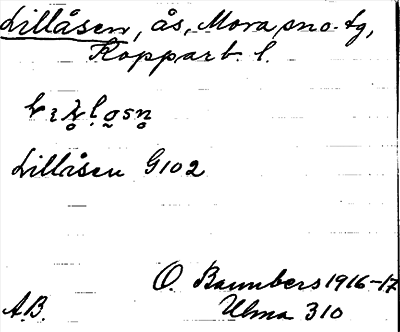 Lillåsen, ås, Mora sno. tg,
Kopparb. l.
Lillåsen G102
O. Bannbers 1916-17
A.B. Ulma 310